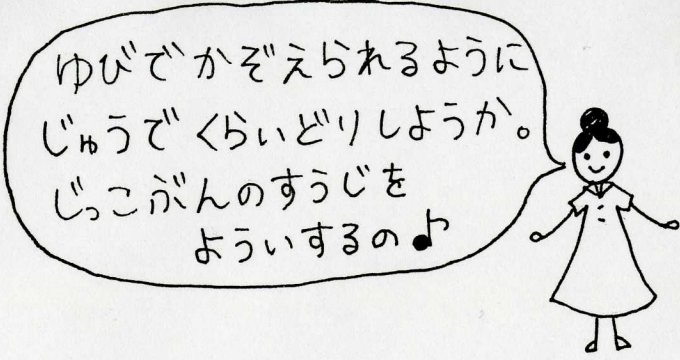 ゆびでかぞえられるように
じゅうでくらいどりしようか。
じっこぶんのすうじを
よういするの♪